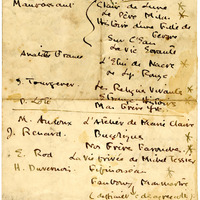 Maupassant Clair de Lune
Le Père Milon
Histoire d'une Fille de
Ferme
Sur l'Eau
La Vie Errante
Anatole France L'Étui de Nacre
Le Lys Rouge
S. Tourgenev. Les Reliques Vivantes
Étranges Histoires
P. Loti Mon Frère Yves
M. Audoux L'Atelier de Marie Claire
J. Renard. Bucoliques
Nos Frères Farouches
E. Rod La Vie Privée de Michel Tessier
H. Duvernois
Faubourg Montmartre